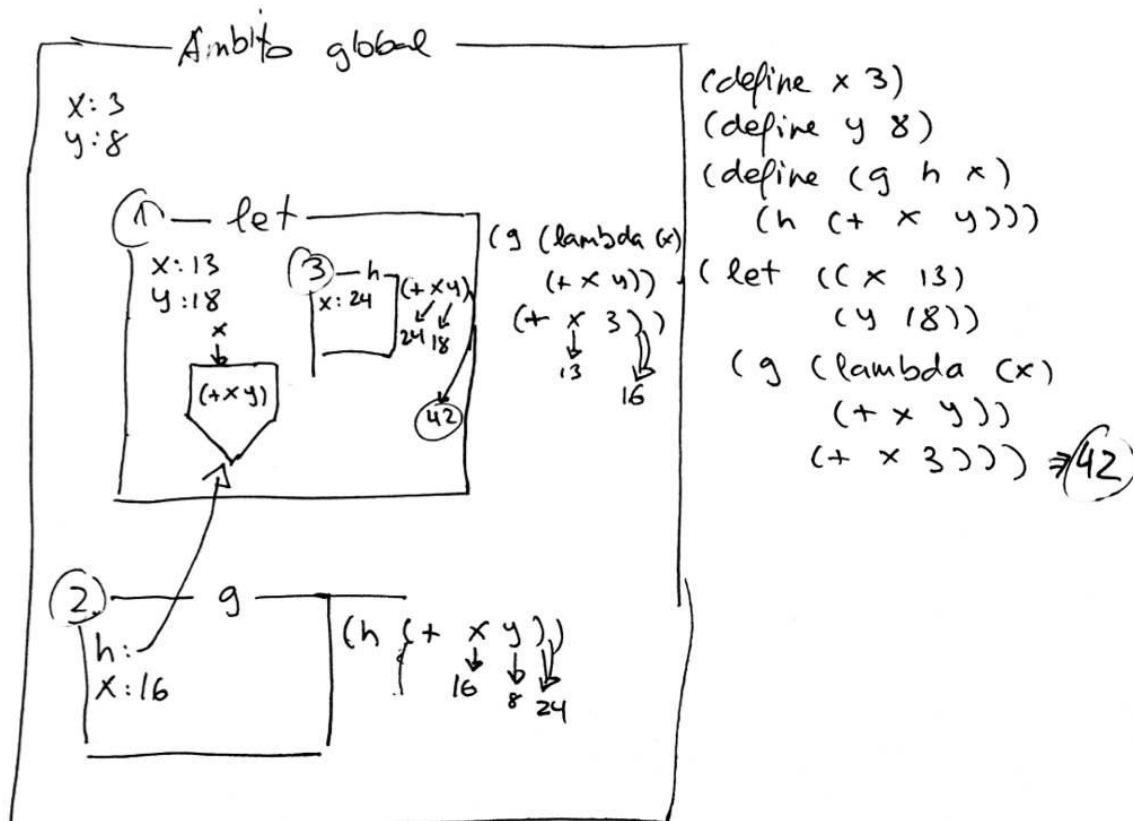 Ámbito global
x: 3
y: 8
1 let
x: 13
y: 18
x
(+ x y)
3 h
x: 24
(+ x y)
24 18
42
(g (lambda (x)
(+ x y))
(+ x 3))
13 16
2 g
h:
x: 16
(h (+ x y))
16 8 24
(define x 3)
(define y 8)
(define (g h x)
(h (+ x y)))
(let ((x 13)
(y 18))
(g (lambda (x)
(+ x y))
(+ x 3)))) ⇒ 42